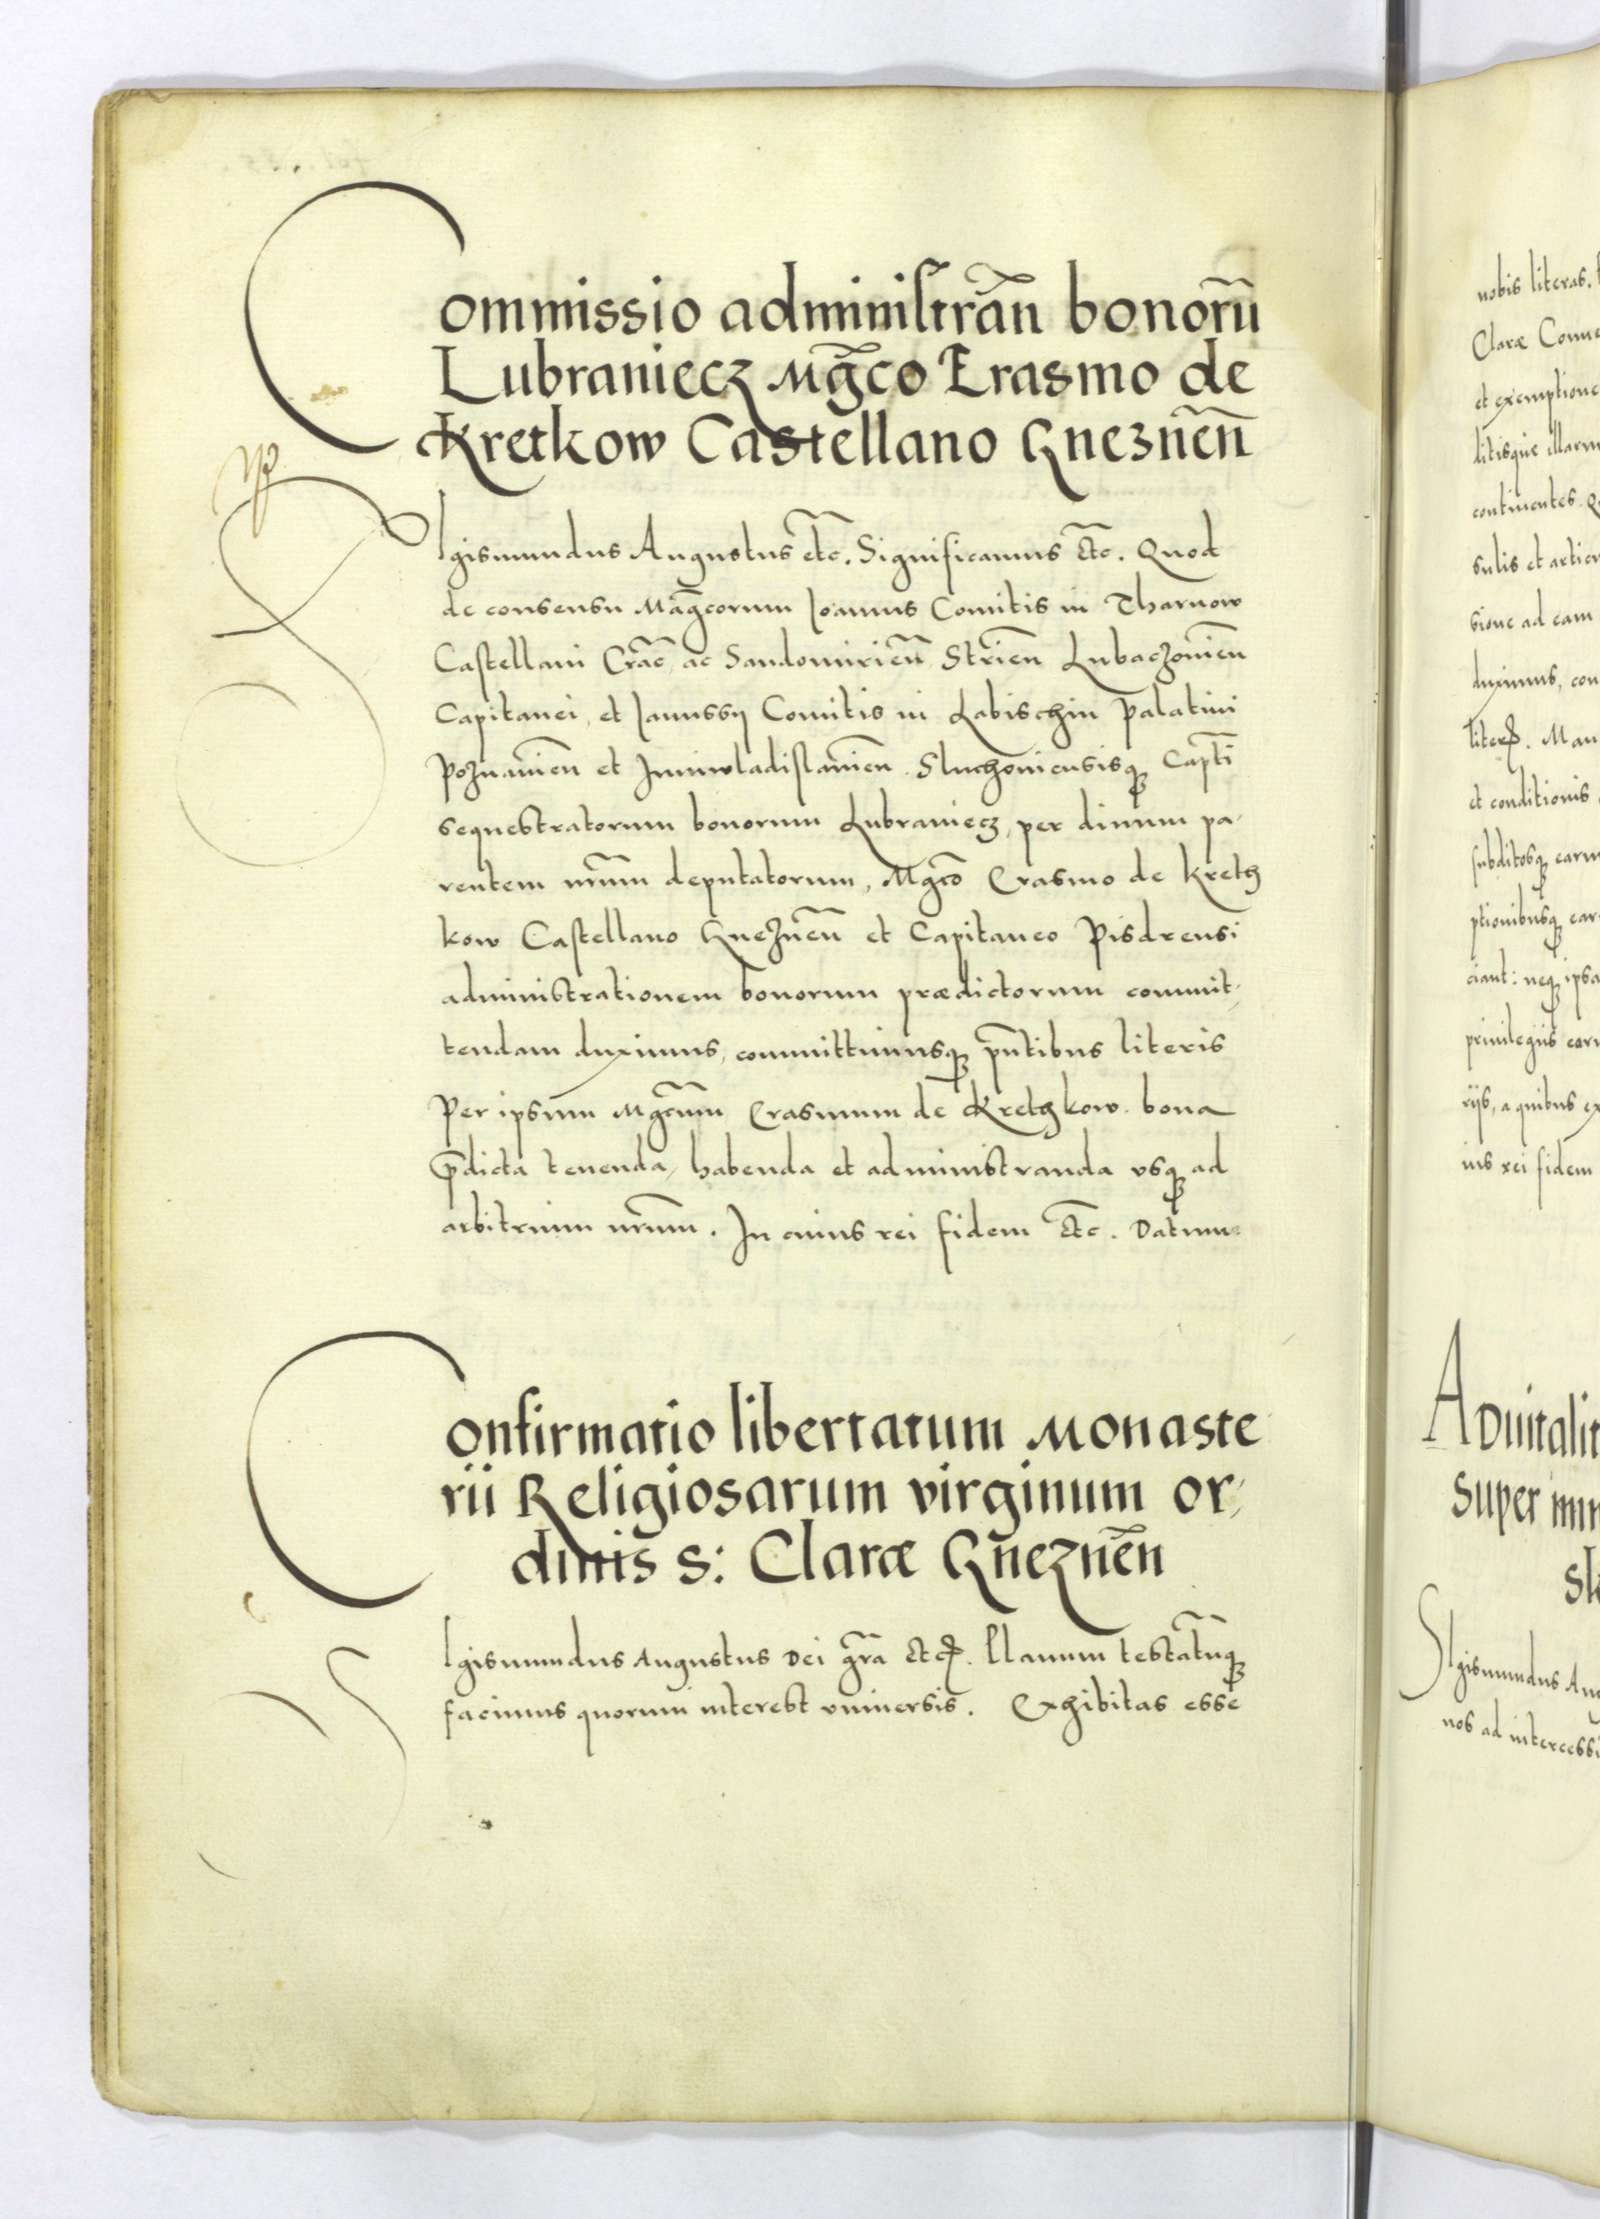 Commissio administrãn bonorũ
Lubraniecz Mg̃co Erasmo de
Kretkow Castellano Gneznẽn
SIgismundus Augustus etc̃. Significamus etc̃. Quod
de consensu Mag̃corum Ioannis Comitis in Tharnow
Castellani Crac̃ ac Sandomiriẽn Striẽn Lubaczoviẽn
Capitanei, et Ianussii Comitis in Labischin Palatini
Poznaniẽn et Iuniwladislaviẽn Sluchoviensisq3 Capt̃i
sequestratorum bonorum Lubraniecz, per divum pa-
rentem nr̃um deputatorum, Mgc̃o Erasmo de Kretz
kow Castellano Gneznẽn et Capitaneo Pisdrensi
administrationem bonorum prædictorum commit-
tendam duximus, committimusq3 pñtibus literis
Per ipsum Mgc̃um Erasmum de Kretzkow bona
p̃dicta tenenda, habenda et administranda usq3 ad
arbitrium nr̃um. In cuius rei fidem etc̃. Datum
Confirmatio libertatum Monaste
rii Religiosarum virginum or-
dinis S: Claræ Gneznẽn
SIgismundus Augustus Dei gr̃a etc. Planum testat̃umq3
facimus quorum interest universis. Exhibitas esse
nobis literas.
Claræ Conve
et exemptione
litisque illarum
continentes. Q
sulis et articu
sione ad eam
duximus, con
liter. Man
et conditionis
subditosq3 earu
ptionibusq3 ear
ciant: neq3 ipsa
privilegiis earu
riis, a quibus ex
ius rei fidem
Advitalit
super
SIgismundus Au
nos ad intercessi